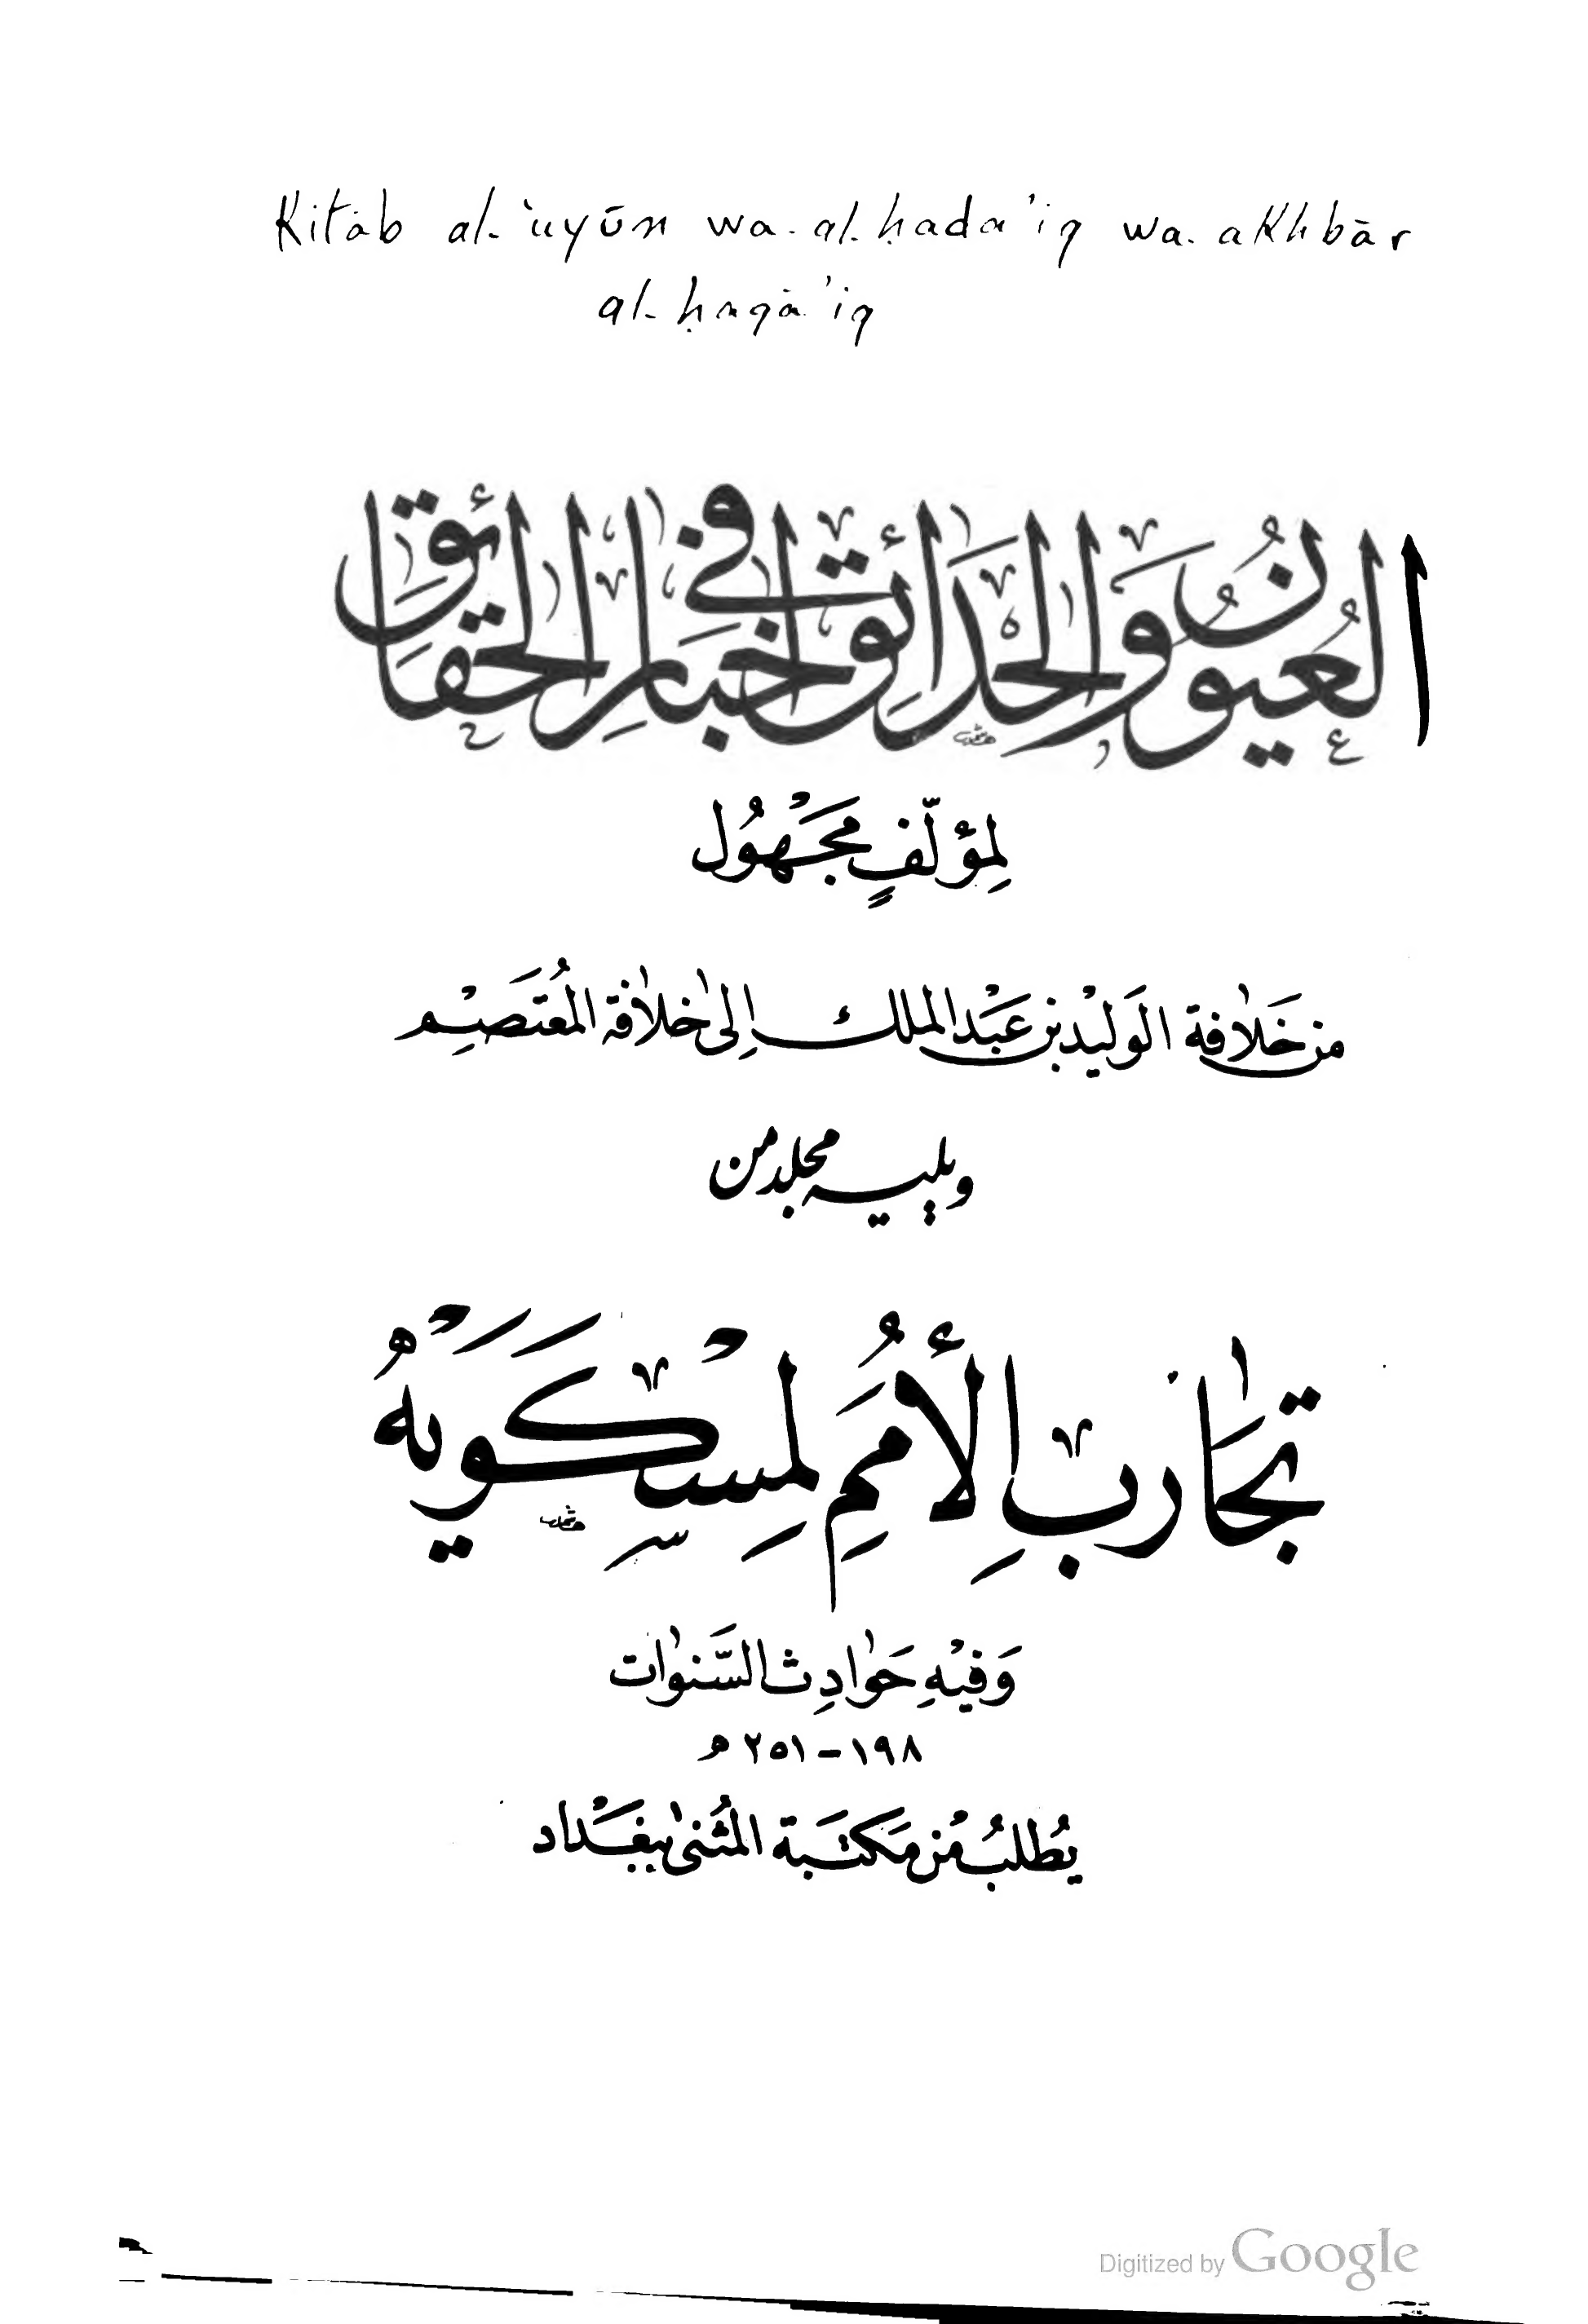 Kitāb al-ʿuyūn wa-al-ḥada'iq wa-akhbār
al-ḥaqā'iq
العُيُونُ وَالحَدَائِق في أخبَارِ الحَقَائِقِ
لِمؤلّفٍ مَجْهُول
من خَلافة الوَليْد بن عَبْد الملك إلى خلافة المُعتَصِيْم
ويليه مجلد من
تجَارب الأُمَمِ لِمِسْكَوَيْهُ
وَفيْهِ حَوادِث السَّنوات
١٩٨ – ٢٥١ ه
يُطلبُ مُن مَكتَبَة المثُنى ببغْدَاد
Digitized by Google